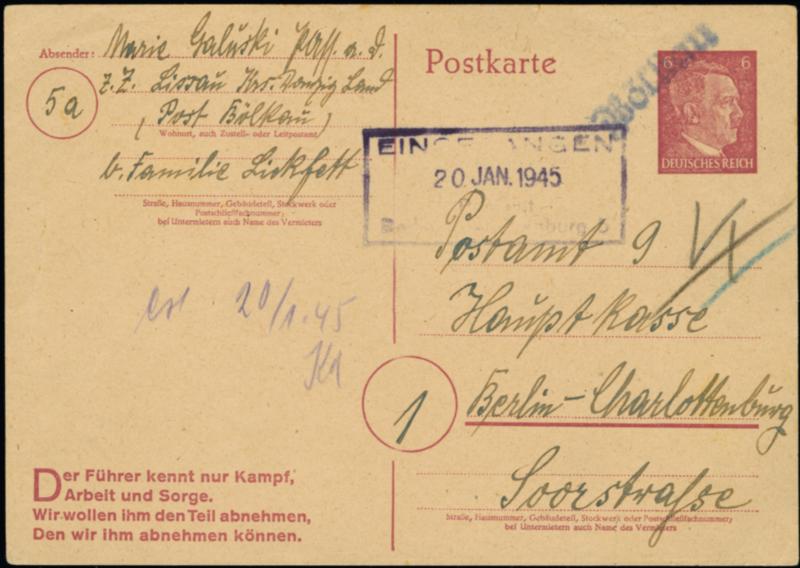 Absender: Marie Galuski
z. Z. Lissau Krs. Danzig Land
(Post Bölkau)
Wohnort, auch Zustell- oder Leitpostamt
b. Familie Lickfett
Straße, Hausnummer, Gebäudeteil, Stockwerk oder
Postschließfachnummer;
bei Untermietern auch Name des Vermieters
5a
20/1.45
Der Führer kennt nur Kampf,
Arbeit und Sorge.
Wir wollen ihm den Teil abnehmen,
Den wir ihm abnehmen können.
Postkarte
6 6
DEUTSCHES REICH
20. JAN. 1945
Postamt 9
Hauptkasse
1
Berlin-Charlottenburg
Soorstraße
Straße, Hausnummer, Gebäudeteil, Stockwerk oder Postschließfachnummer;
bei Untermietern auch Name des Vermieters